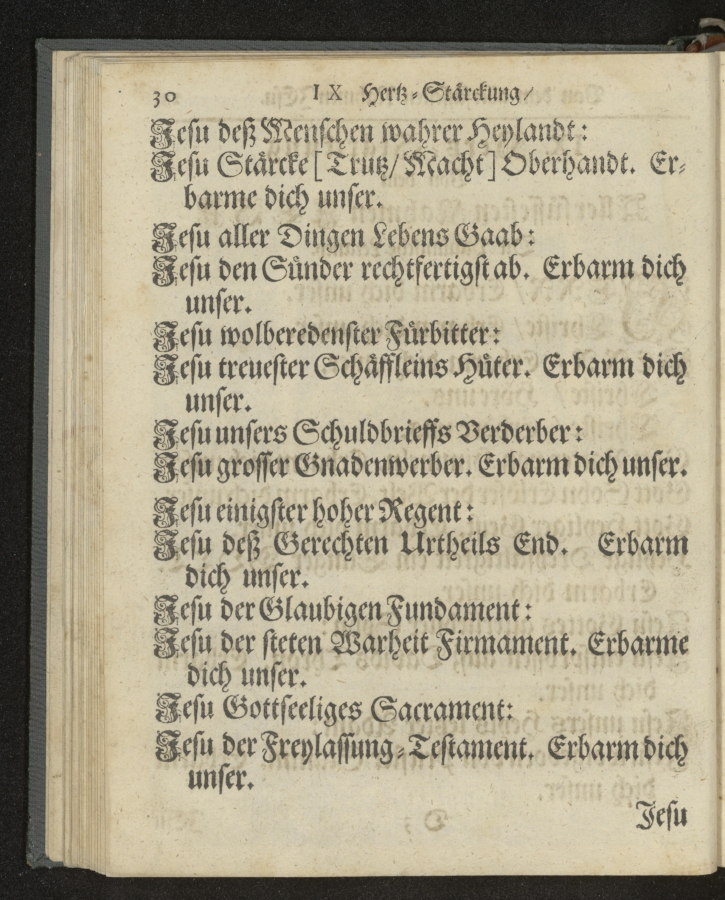 30 IX Hertz-Stärckung/
Jesu deß Menschen wahrer Heylandt:
Jesu Stärcke [Trutz/Macht] Oberhandt. Er-
barme dich unser.
Jesu aller Dingen Lebens Gaab:
Jesu den Sünder rechtfertigst ab. Erbarm dich
unser.
Jesu wolberedenster Fürbitter:
Jesu treuester Schäffleins Hüter. Erbarm dich
unser.
Jesu unsers Schuldbrieffs Verderber:
Jesu grosser Gnadenwerber. Erbarm dich unser.
Jesu einigster hoher Regent:
Jesu deß Gerechten Urtheils End. Erbarm
dich unser.
Jesu der Glaubigen Fundament:
Jesu der steten Warheit Firmament. Erbarme
dich unser.
Jesu Gottseeliges Sacrament:
Jesu der Freylassung-Testament. Erbarm dich
unser.
Jesu